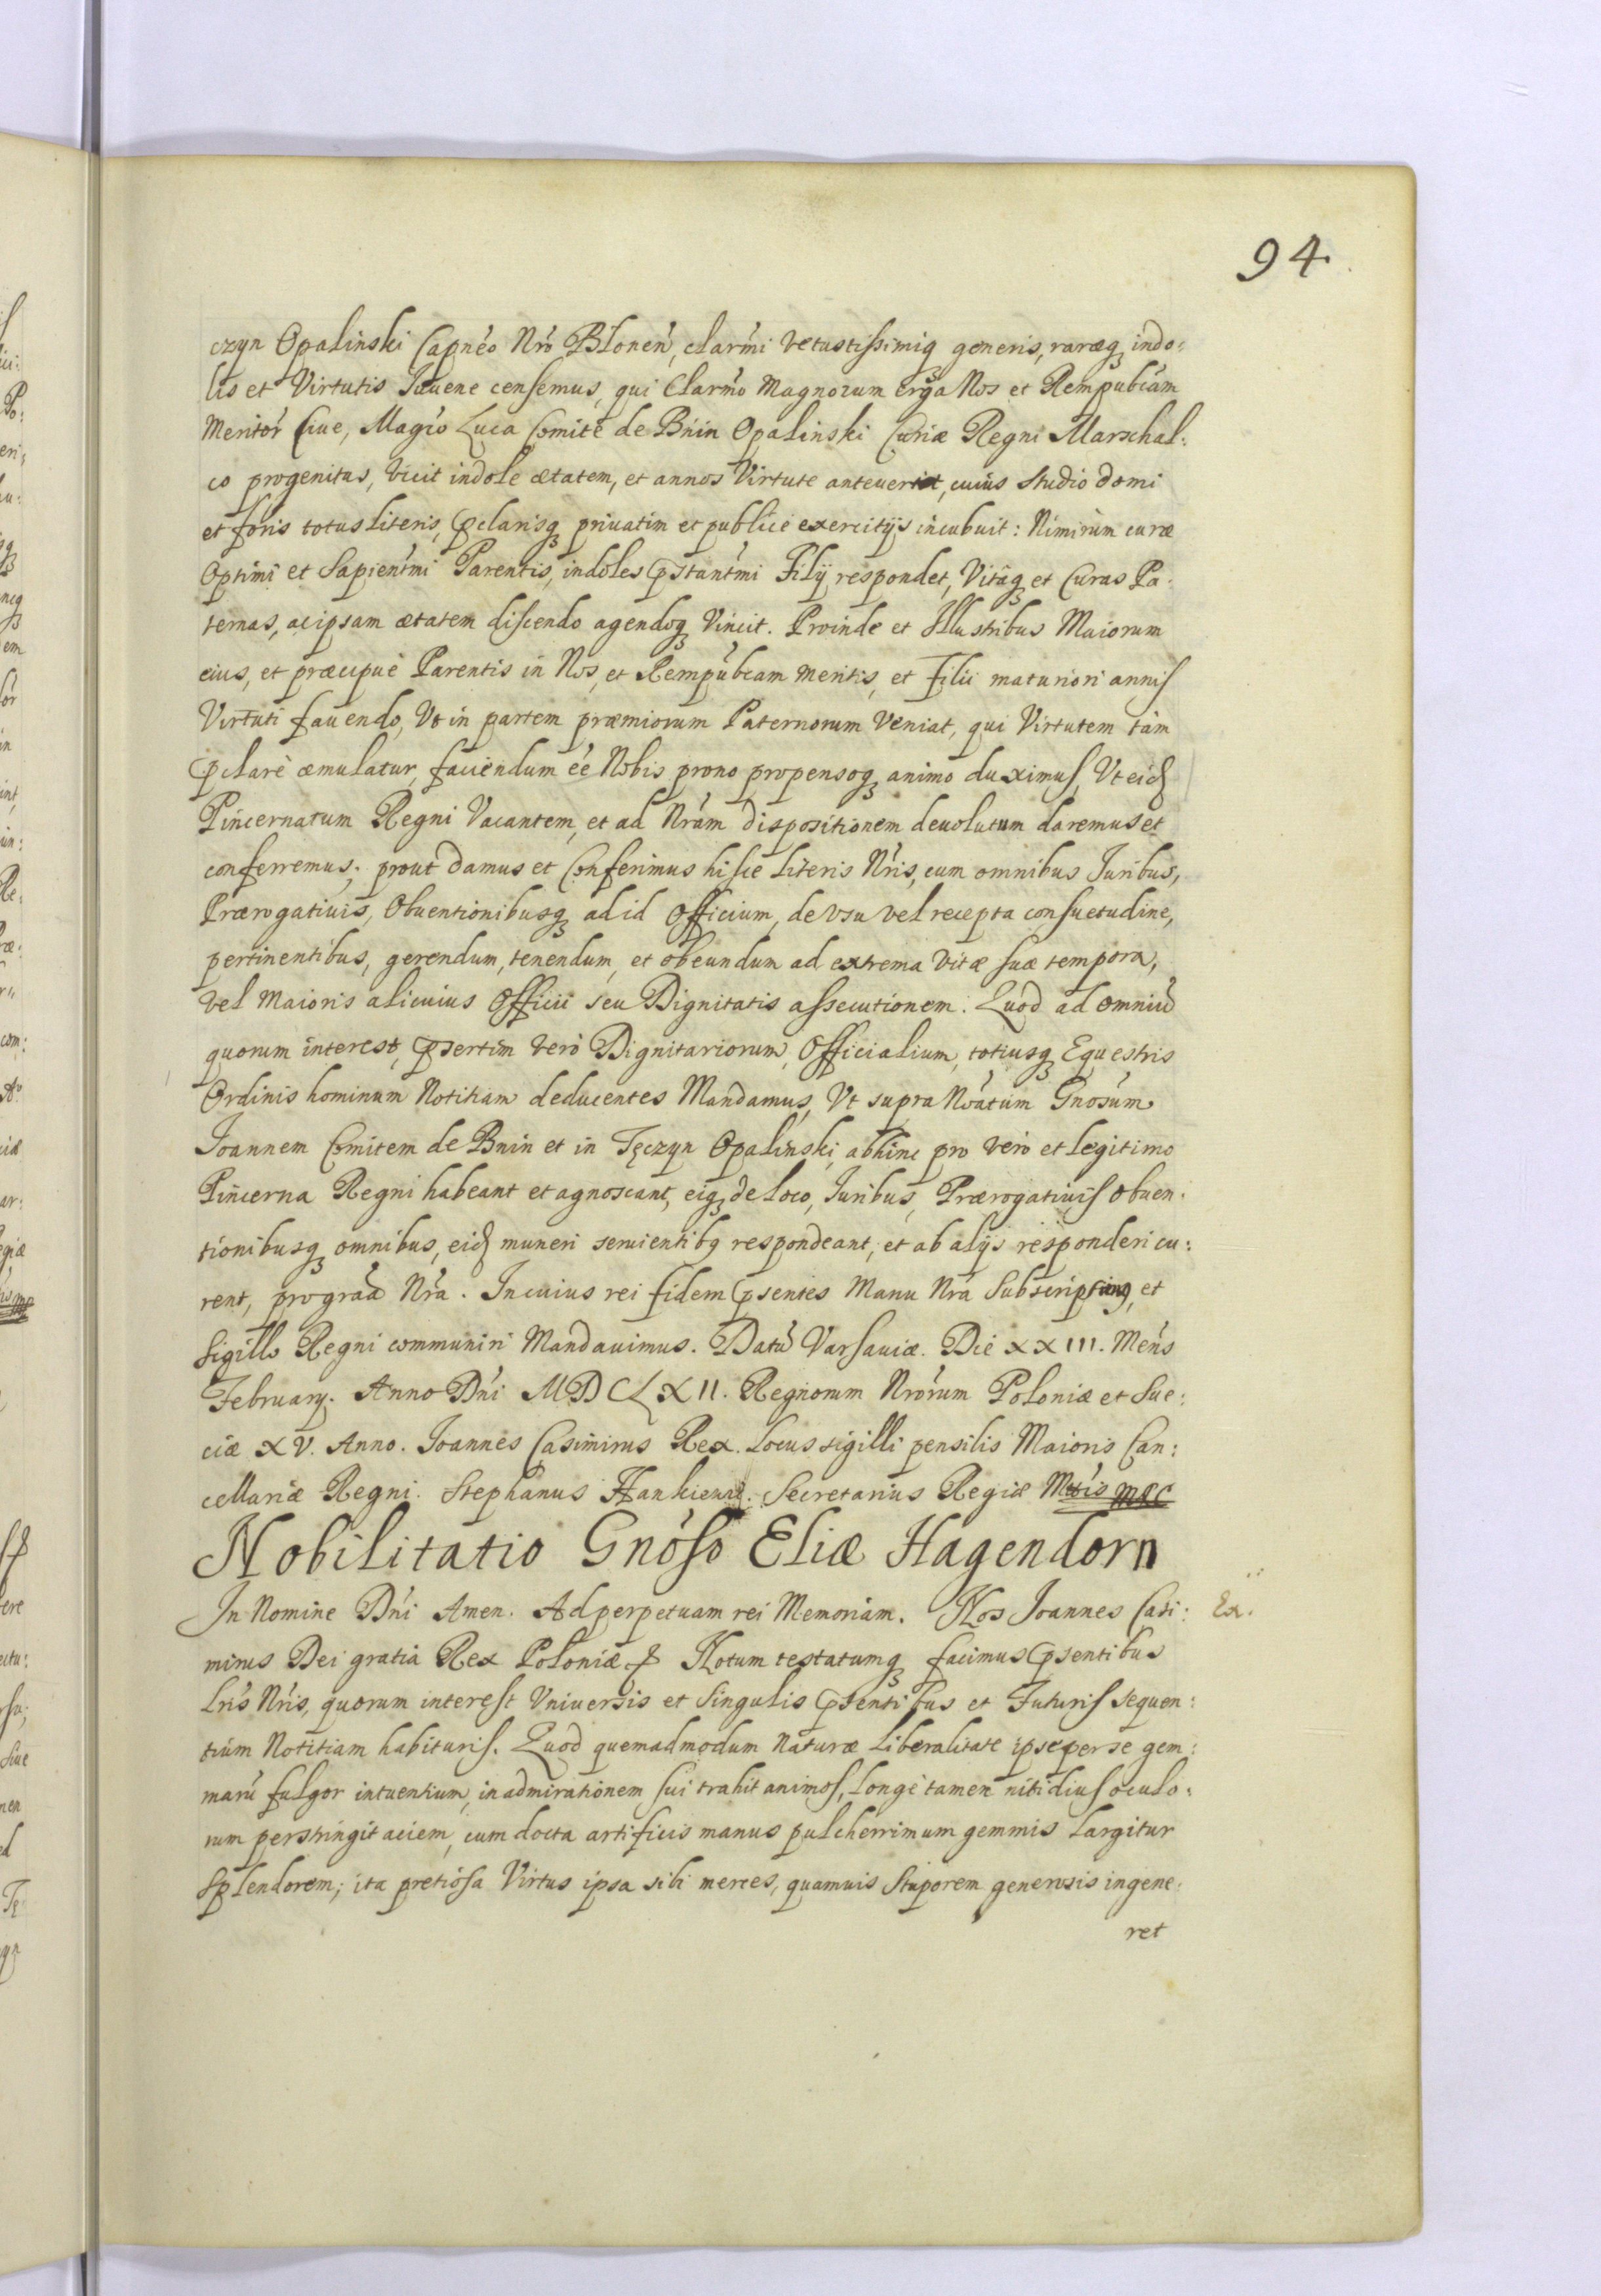 94.
czyn Opalinski Capnéo Nrõ Blonen̄, clarm̃i vetustissimiq; generis, raræq; indo:
lis et Virtutis Iuvene censemus, qui Clarm̃o Magnorum erga Nos et Rempubcãm
Meritor̃ Ciue, Magco Luca Comite de Bnin Opalinski Curiæ Regni Marschal:
co progenitus, vicit indole ætatem, et annos Virtute anteuertit, cuius studio domi
et foris totus literis, p̃clarisq; priuatim et publice exercitijs incubuit: Nimirùm curæ
Optimi et Sapientm̃i Parentis, indoles p̃stantm̃i Filij respondet, Vitâq; et Curas Pa:
ternas, ac ipsam ætatem discendo agendoq; Vincit. Proinde et Illustribus Maiorum
eius, et præcipuè Parentis in Nos, et Rempubcam meritis, et Filii maturiori annis
Virtuti fauendo, Vt in partem præmiorum Paternorum Veniat, qui Virtutem tàm
p̃clarè æmulatur, faciendum eẽ Nobis prono propensoq; animo duximus, Vt eid
Pincernatum Regni Vacantem, et ad Nrãm dispositionem deuolutum daremus et
conferremus; prout damus et Conferimus hisce literis Nrĩs, cum omnibus Iuribus,
Prærogatiuis, Obuentionibusq; ad id Officium, de vsu vel recepta consuetudine,
pertinentibus, gerendum, tenendum, et obeundum ad extrema vitæ suæ tempora,
vel Maioris alicuius Officii seu Dignitatis assecutionem. Quod ad omniũ
quorum interest, p̃sertim verò Dignitariorum, Officialium, totiusq; Equestris
Ordinis hominum Notitiam deducentes Mandamus, Vt supra Noãtum Gnõsum
Ioannem Comitem de Bnin et in Tęczyn Opalinski, abhinc pro vero et legitimo
Pincerna Regni habeant et agnoscant, eiq; de loco, Iuribus, Prærogatiuis Obuen:
tionibusq; omnibus, eid muneri seruientibq; respondeant, et ab alijs responderi cu:
rent, pro grãã Nrã. In cuius rei fidem p̃sentes Manu Nrã Subscriptas, et
Sigillo Regni communiri Mandauimus. Datũ Varsauiæ. Die XXIII. Mens̃
February. Anno Dnĩ MDCLXII. Regnorum Nrõrum Poloniæ et Sue:
ciæ XV. Anno. Ioannes Casimirus Rex. Locus sigilli pensilis Maioris Can:
cellariæ Regni. Stephanus Hankiewi. Secretarius Regiæ Mttis mpp
Nobilitatio Gnõso Eliæ Hagendorn
In Nomine Dnĩ Amen. Ad perpetuam rei Memoriam. Nos Ioannes Casi: Ex.
mirus Dei gratia Rex Poloniæ & Notum testatumq; facimus p̃sentibus
Lrĩs Nrĩs, quorum interest Vniuersis et Singulis p̃sentibus et Futuris sequen:
tium Notitiam habituris. Quod quemadmodum naturæ liberalitate ipse per se gem:
marũ fulgor intuentium, in admirationem sui trahit animos, longè tamen nitidius oculo:
rum perstringit aciem, cum docta artificis manus pulcherrimum gemmis largitur
Splendorem; ita pretiosa Virtus ipsa sibi merces, quamuis Stuporem generosis ingene:
ret